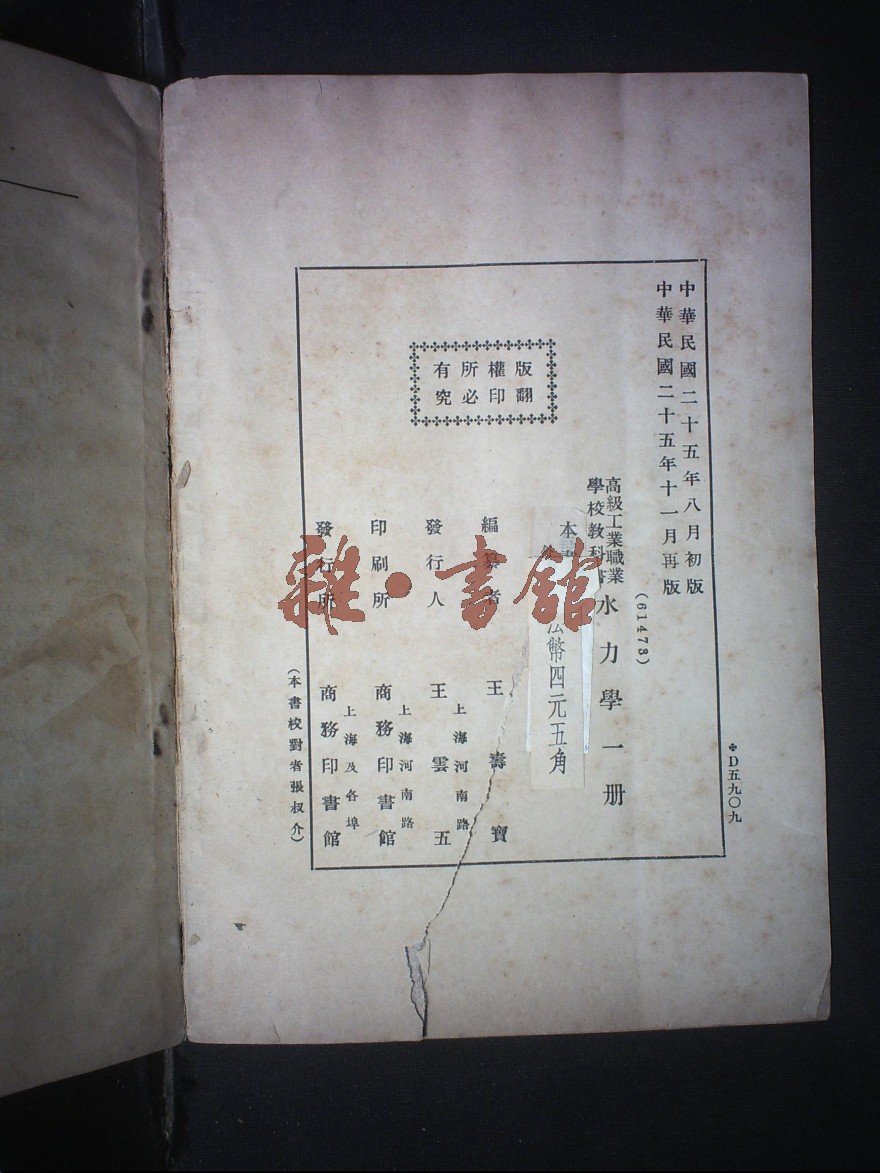 中華民國二十五年八月初版
中華民國二十五年十一月再版
(61473)
高級工業職業
學校教科書
水力學一册
本
法幣四元五角
版權所有
翻印必究
編纂者 王壽寶
發行人 王雲五
上海河南路
印刷所 商務印書館
上海河南路
發行所 商務印書館
上海及各埠
(本書校對者張叔介)
D五九〇九
雜·書館